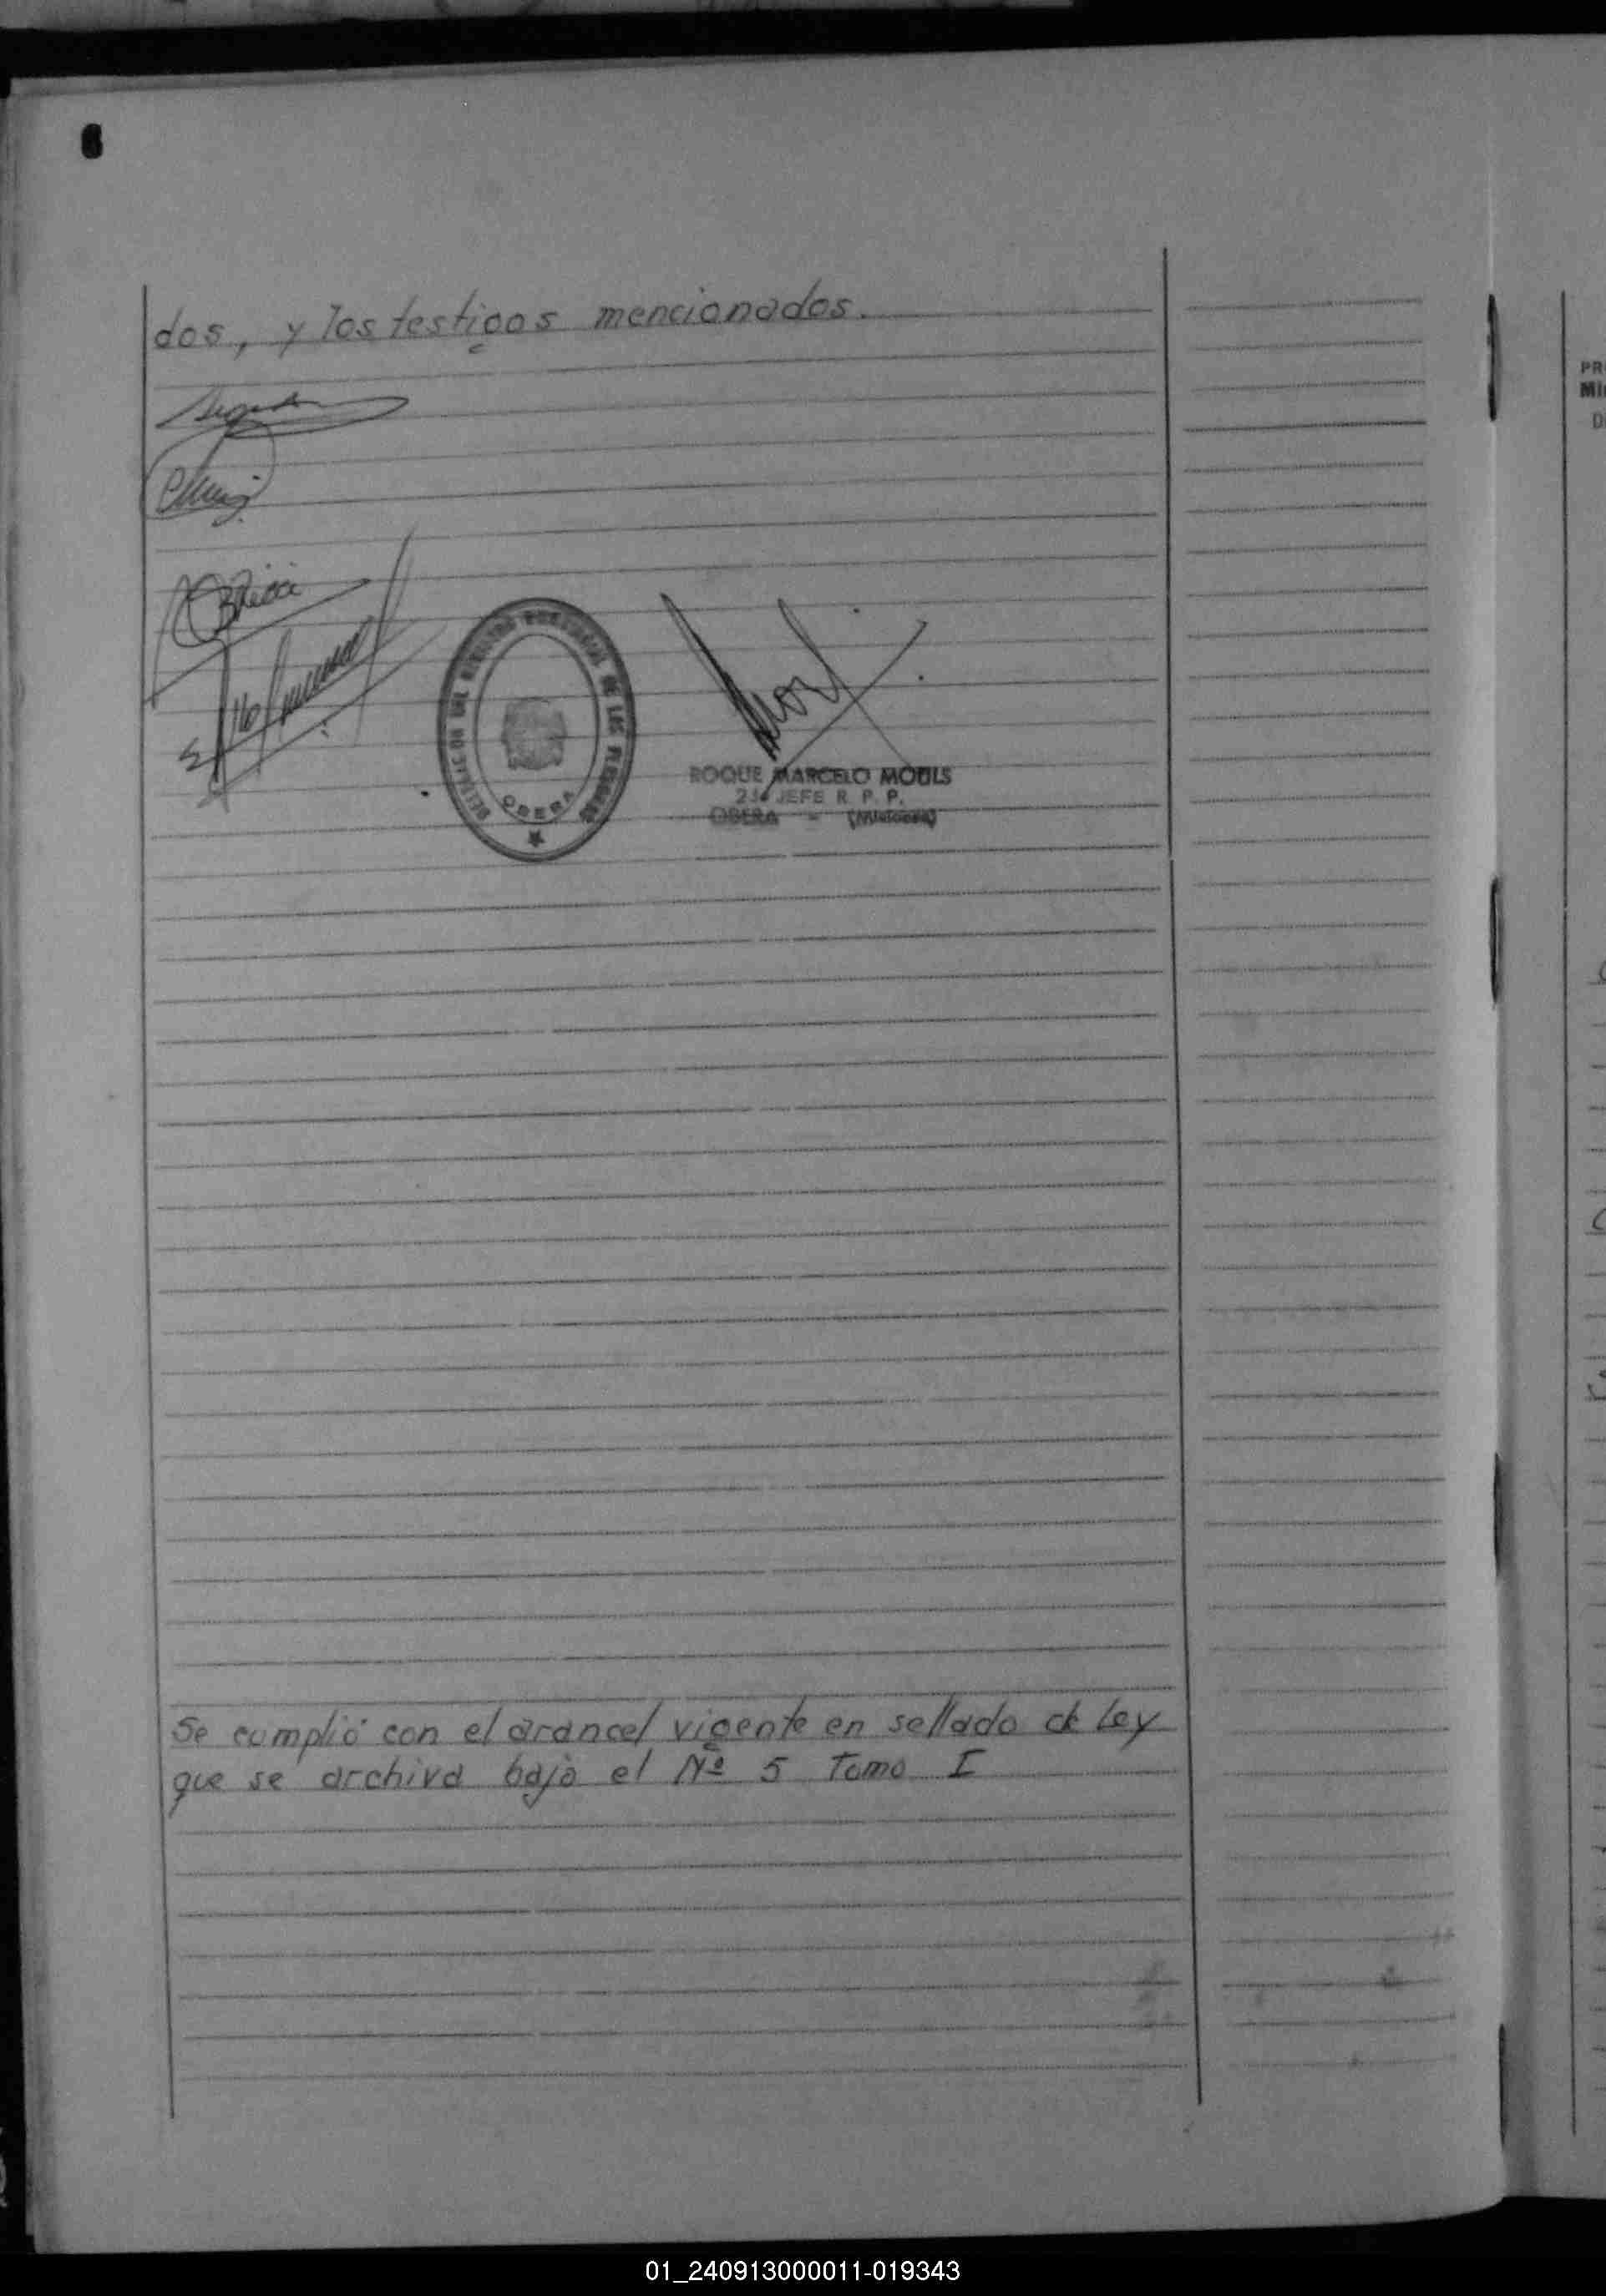 dos, y los testigos mencionados.
DELEGACION DEL REGISTRO PROVINCIAL DE LAS PERSONAS
OBERA
ROQUE MARCELO MODLS
JEFE R. P. P.
OBERA - (Misiones)
Se cumplió con el arancel vigente en sellado de Ley
que se archiva bajo el Nº 5 Tomo I
PR
MI
D
01_240913000011-019343